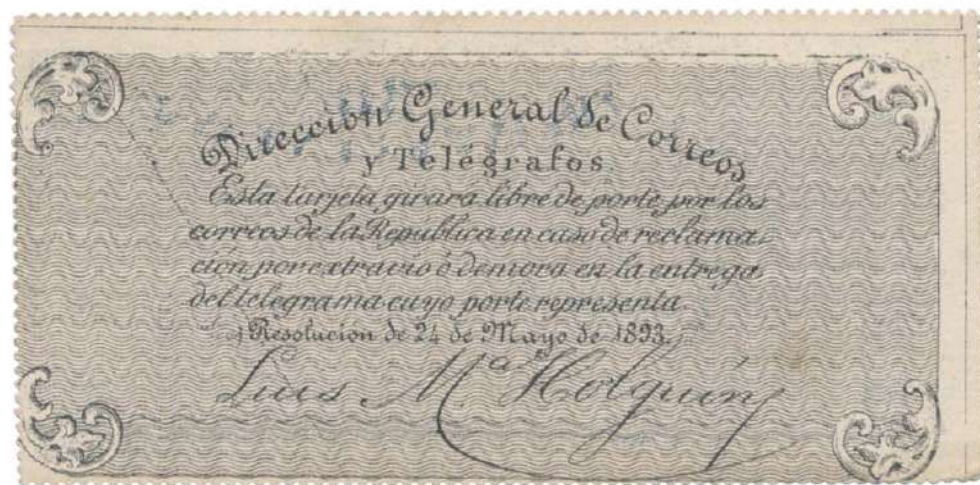 Dirección General de Correos
y Telégrafos.
Esta tarjeta girara libre de porte por los
correos de la Republica en caso de reclama-
cion por extravio ó demora en la entrega
del telegrama cuyo porte representa.
(Resolucion de 24 de Mayo de 1893.)
Luis Ma Holguín